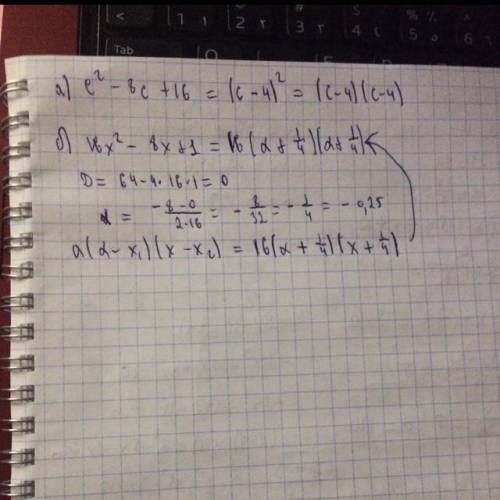 Tab
а) c² - 8c + 16 = (c - 4)² = (c-4)(c-4)
б) 16x² - 8x + 1 = 16(x + 1/4)(x + 1/4)
D = 64 - 4 · 16 · 1 = 0
x = -8-0/2·16 = - 8/32 = - 1/4 = - 0,25
a(x - x₁)(x - x₂) = 16(x + 1/4)(x + 1/4)